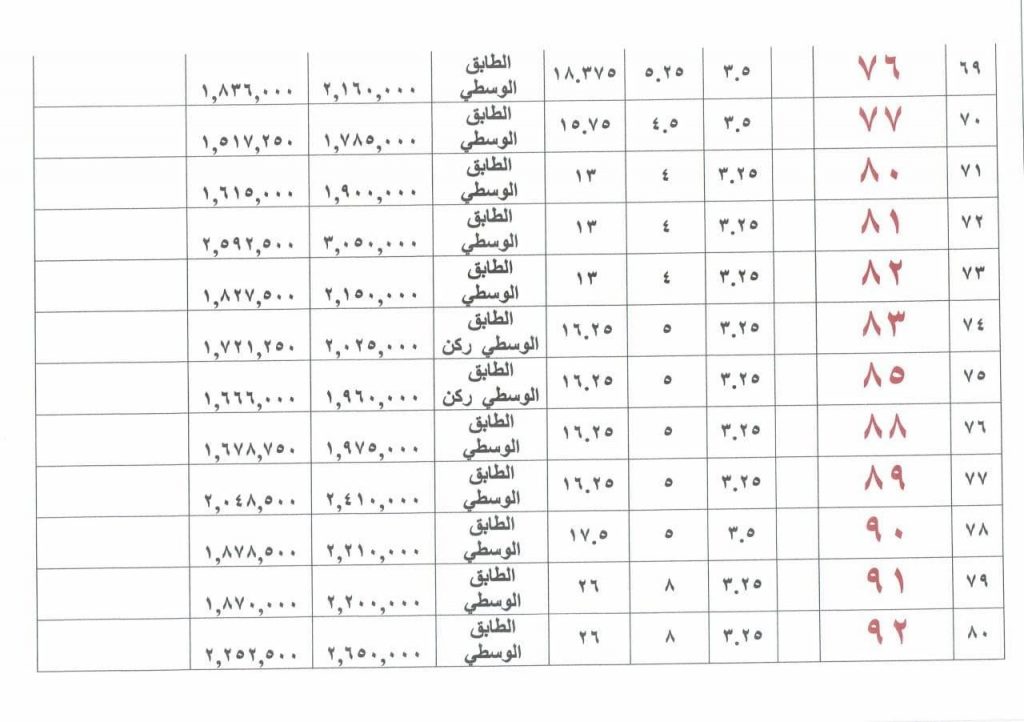 ٦٩ ٧٦ ٣.٥ ٥.٢٥ ١٨.٣٧٥ الطابق الوسطي ٢,١٦٠,٠٠٠ ١,٨٣٦,٠٠٠
٧٠ ٧٧ ٣.٥ ٤.٥ ١٥.٧٥ الطابق الوسطي ١,٧٨٥,٠٠٠ ١,٥١٧,٢٥٠
٧١ ٨٠ ٣.٢٥ ٤ ١٣ الطابق الوسطي ١,٩٠٠,٠٠٠ ١,٦١٥,٠٠٠
٧٢ ٨١ ٣.٢٥ ٤ ١٣ الطابق الوسطي ٣,٠٥٠,٠٠٠ ٢,٥٩٢,٥٠٠
٧٣ ٨٢ ٣.٢٥ ٤ ١٣ الطابق الوسطي ٢,١٥٠,٠٠٠ ١,٨٢٧,٥٠٠
٧٤ ٨٣ ٣.٢٥ ٥ ١٦.٢٥ الطابق الوسطي ركن ٢,٠٢٥,٠٠٠ ١,٧٢١,٢٥٠
٧٥ ٨٥ ٣.٢٥ ٥ ١٦.٢٥ الطابق الوسطي ركن ١,٩٦٠,٠٠٠ ١,٦٦٦,٠٠٠
٧٦ ٨٨ ٣.٢٥ ٥ ١٦.٢٥ الطابق الوسطي ١,٩٧٥,٠٠٠ ١,٦٧٨,٧٥٠
٧٧ ٨٩ ٣.٢٥ ٥ ١٦.٢٥ الطابق الوسطي ٢,٤١٠,٠٠٠ ٢,٠٤٨,٥٠٠
٧٨ ٩٠ ٣.٥ ٥ ١٧.٥ الطابق الوسطي ٢,٢١٠,٠٠٠ ١,٨٧٨,٥٠٠
٧٩ ٩١ ٣.٢٥ ٨ ٢٦ الطابق الوسطي ٢,٢٠٠,٠٠٠ ١,٨٧٠,٠٠٠
٨٠ ٩٢ ٣.٢٥ ٨ ٢٦ الطابق الوسطي ٢,٦٥٠,٠٠٠ ٢,٢٥٢,٥٠٠